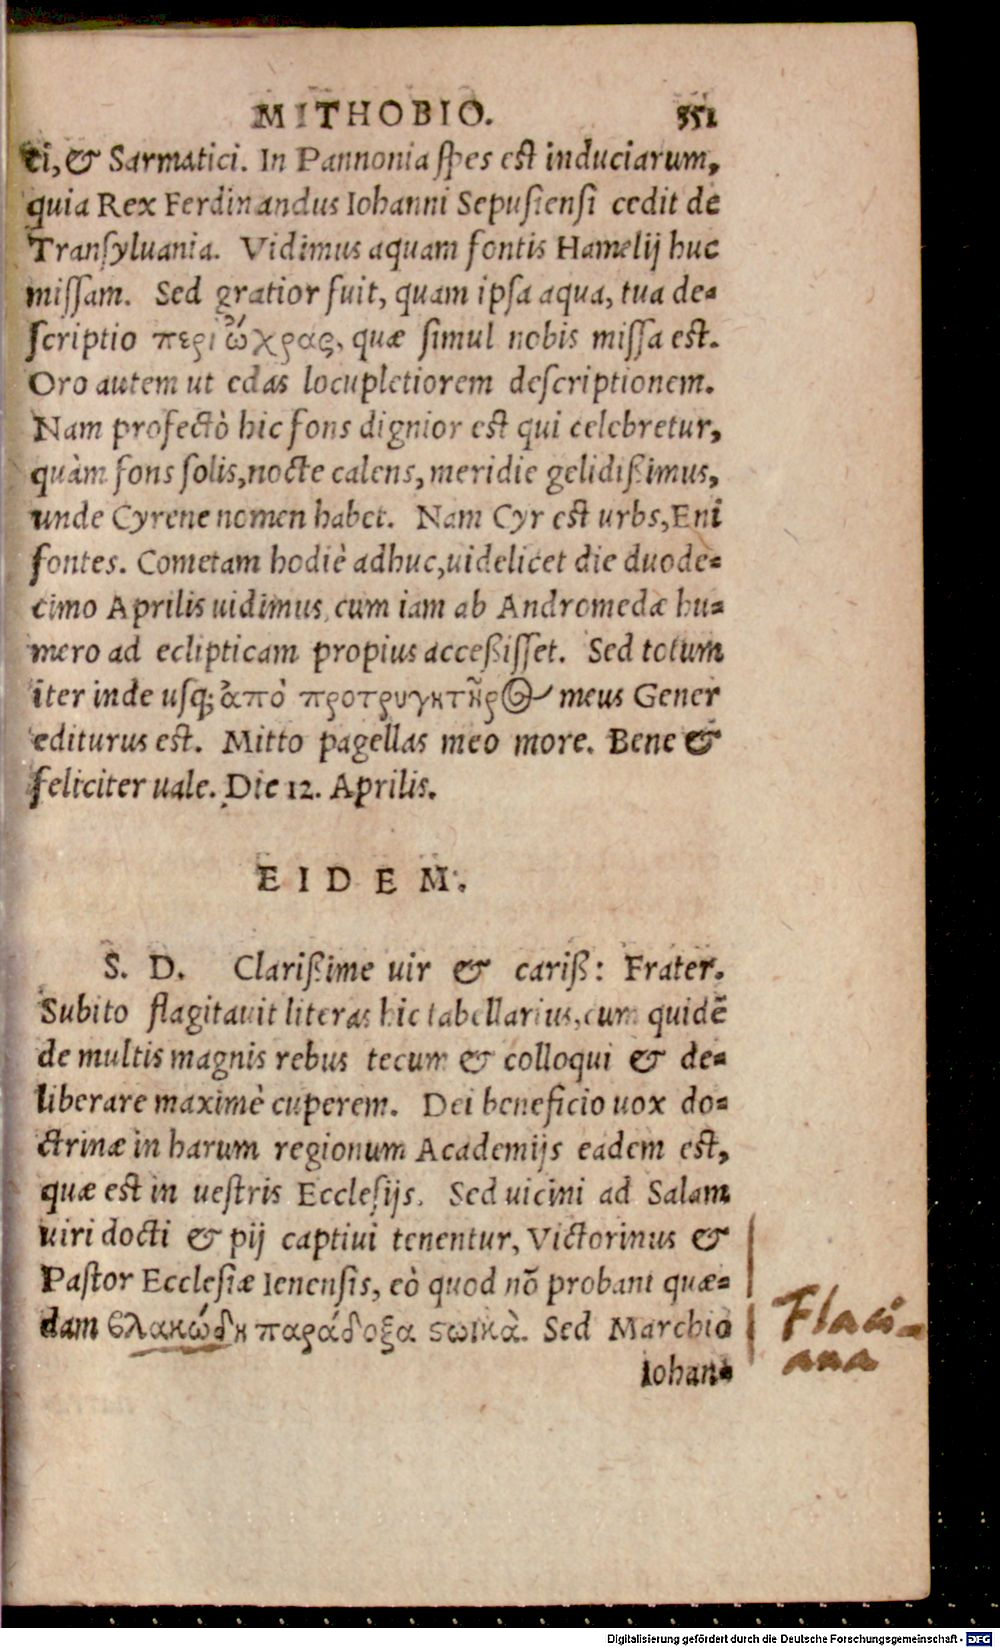 MITHOBIO. 351
ci, & Sarmatici. In Pannonia ſpes est induciarum,
quia Rex Ferdinandus Iohanni Sepuſienſi cedit de
Tranſyluania. Vidimus aquam fontis Hamelij huc
miſſam. Sed gratior fuit, quam ipſa aqua, tua de-
ſcriptio περὶ ὤχρας, quæ ſimul nobis miſſa est.
Oro autem ut edas locupletiorem deſcriptionem.
Nam profectò hic fons dignior est qui celebretur,
quàm fons ſolis, nocte calens, meridie gelidißimus,
unde Cyrene nomen habet. Nam Cyr est urbs, Eni
fontes. Cometam hodiè adhuc, uidelicet die duode-
cimo Aprilis uidimus, cum iam ab Andromedæ hu-
mero ad eclipticam propius acceßiſſet. Sed totum
iter inde uſq; ἀπὸ προτρυγητῆρος meus Gener
editurus est. Mitto pagellas meo more. Bene &
feliciter uale. Die 12. Aprilis.
EIDEM.
S. D. Clarißime uir & cariß: Frater.
Subito flagitauit literas hic tabellarius, cum quidē
de multis magnis rebus tecum & colloqui & de-
liberare maximè cuperem. Dei beneficio uox do-
ctrinæ in harum regionum Academijs eadem est,
quæ est in uestris Eccleſijs. Sed uicini ad Salam
uiri docti & pij captiui tenentur, Victorinus &
Paſtor Eccleſiæ Ienenſis, eò quod nō probant quæ-
dam βλακώδη παράδοξα ϛωικὰ. Sed Marchio
Iohan-
Flaci-
ana
Digitalisierung gefördert durch die Deutsche Forschungsgemeinschaft - DFG